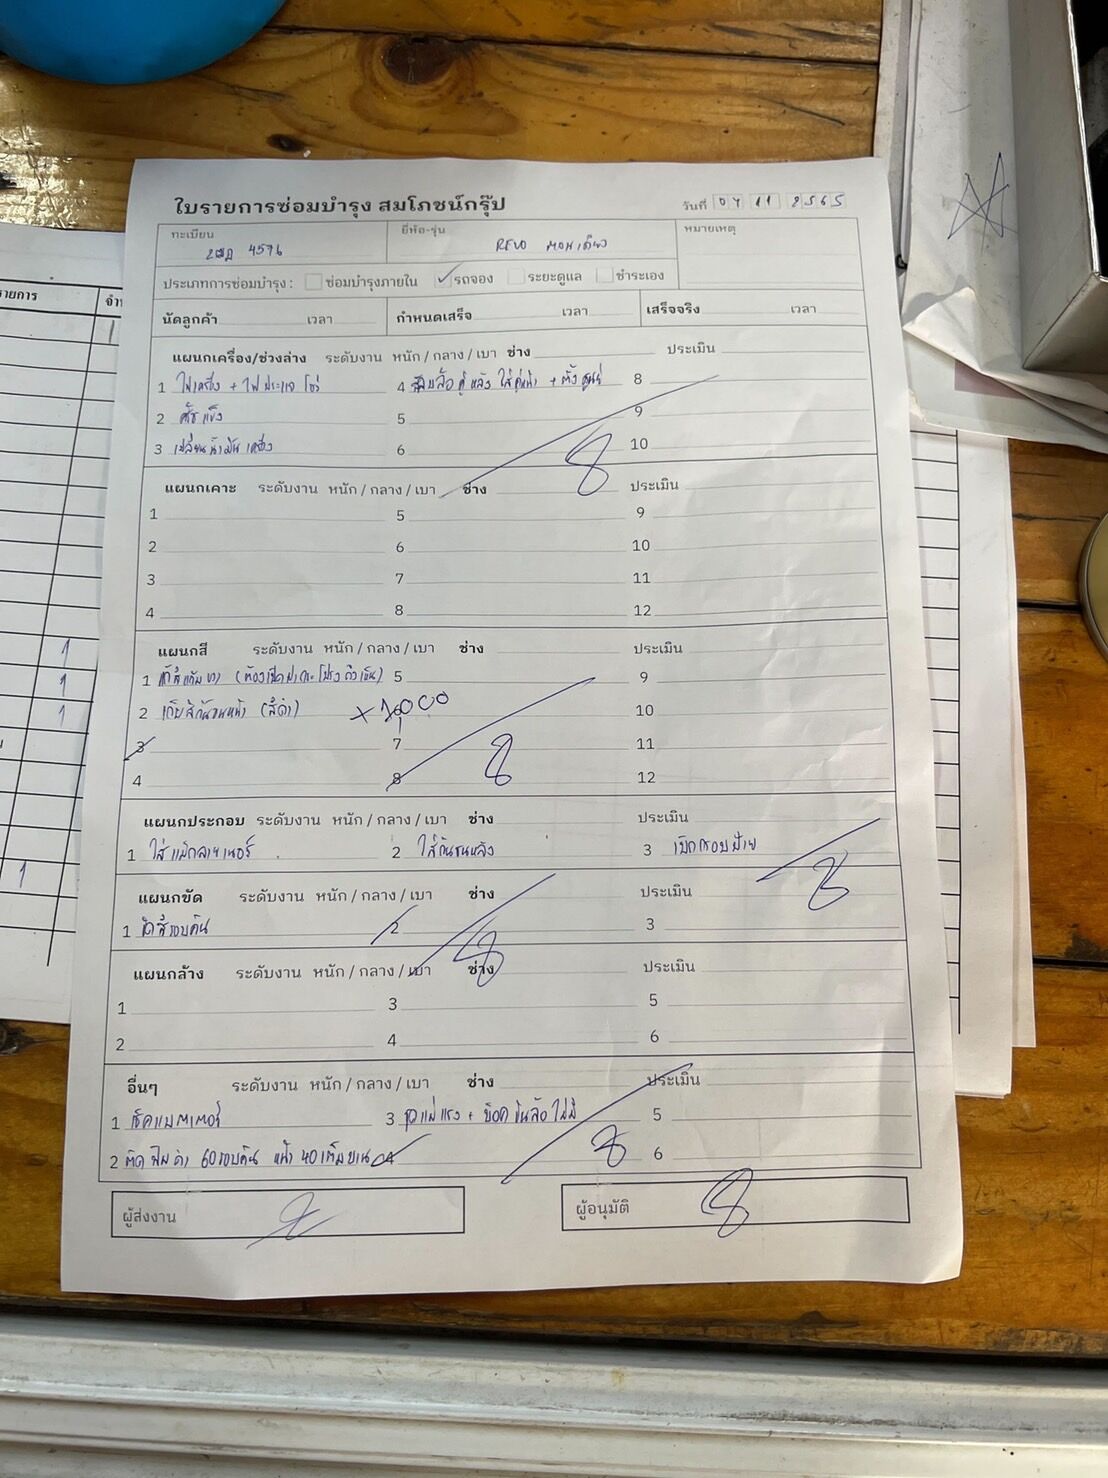 ใบรายการซ่อมบำรุง สมโภชน์กรุ๊ป
วันที่ 07 11 2565
ทะเบียน 4576
ยี่ห้อ-รุ่น REVO ตอนเดียว
หมายเหตุ
ประเภทการซ่อมบำรุง : ซ่อมบำรุงภายใน ✓ รถจอง ระยะดูแล ชำระเอง
นัดลูกค้า เวลา กำหนดเสร็จ เวลา เสร็จจริง เวลา
แผนกเครื่อง/ช่วงล่าง ระดับงาน หนัก / กลาง / เบา ช่าง ประเมิน
1 ไฟเครื่อง + ไฟประแจ โชว์
2 แข็ง
3 เปลี่ยนน้ำมันเครื่อง
4 ล้อคู่หลัง ใส่คู่หน้า + ตั้งศูนย์
5
6
8
9
10
แผนกเคาะ ระดับงาน หนัก / กลาง / เบา ช่าง ประเมิน
1 5 9
2 6 10
3 7 11
4 8 12
แผนกสี ระดับงาน หนัก / กลาง / เบา ช่าง ประเมิน
1 (ต้องเปิดฝากระโปรงถึงเห็น) 5 9
2 เก็บสีกันชนหน้า (สีดำ) 10
3 7 11
4 8 12
แผนกประกอบ ระดับงาน หนัก / กลาง / เบา ช่าง ประเมิน
1 ใส่แม็กลายเนอร์ 2 ใส่กันชนหลัง 3 เบิกกรอบป้าย
แผนกขัด ระดับงาน หนัก / กลาง / เบา ช่าง ประเมิน
1 ขัดสีรอบคัน 2 3
แผนกล้าง ระดับงาน หนัก / กลาง / เบา ช่าง ประเมิน
1 3 5
2 4 6
อื่นๆ ระดับงาน หนัก / กลาง / เบา ช่าง ประเมิน
1 เช็คแบตเตอรี่ 3 แม่แรง + บล็อคขันล้อ ไม่มี 5
2 ติดฟิล์มดำ 60 รอบคัน หน้า 40 เต็มบาน 4 6
ผู้ส่งงาน
ผู้อนุมัติ